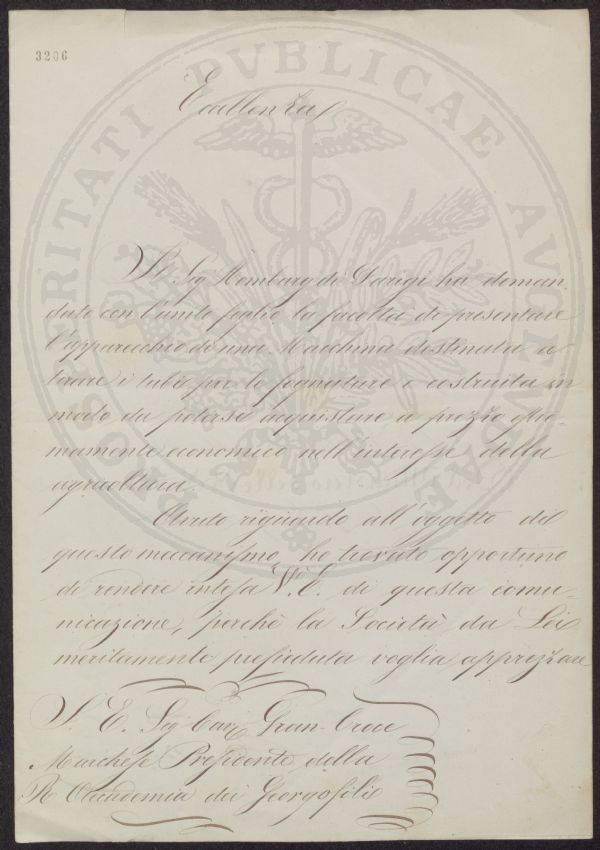 3206
PROSPERITATI PVBLICAE AVGENDAE
Eccellenza
Il Sig. Homburg di Parigi ha doman
dato con l'unito foglio la facoltà di presentare
l'apparecchio di una Macchina destinata a
forare i tubi per le fognature e costruita in
modo da potersi acquistare a prezzo estre-
mamente economico nell'interesse della
agricoltura.
Avuto riguardo all'oggetto del
questo meccanismo, ho trovato opportuno
di rendere intesa V. E. di questa comu-
nicazione, perchè la Società da Lei
meritamente presieduta voglia apprezzare
S. E. Sig Cav Gran-Croce
Marchese Presidente della
R Accademia dei Georgofili